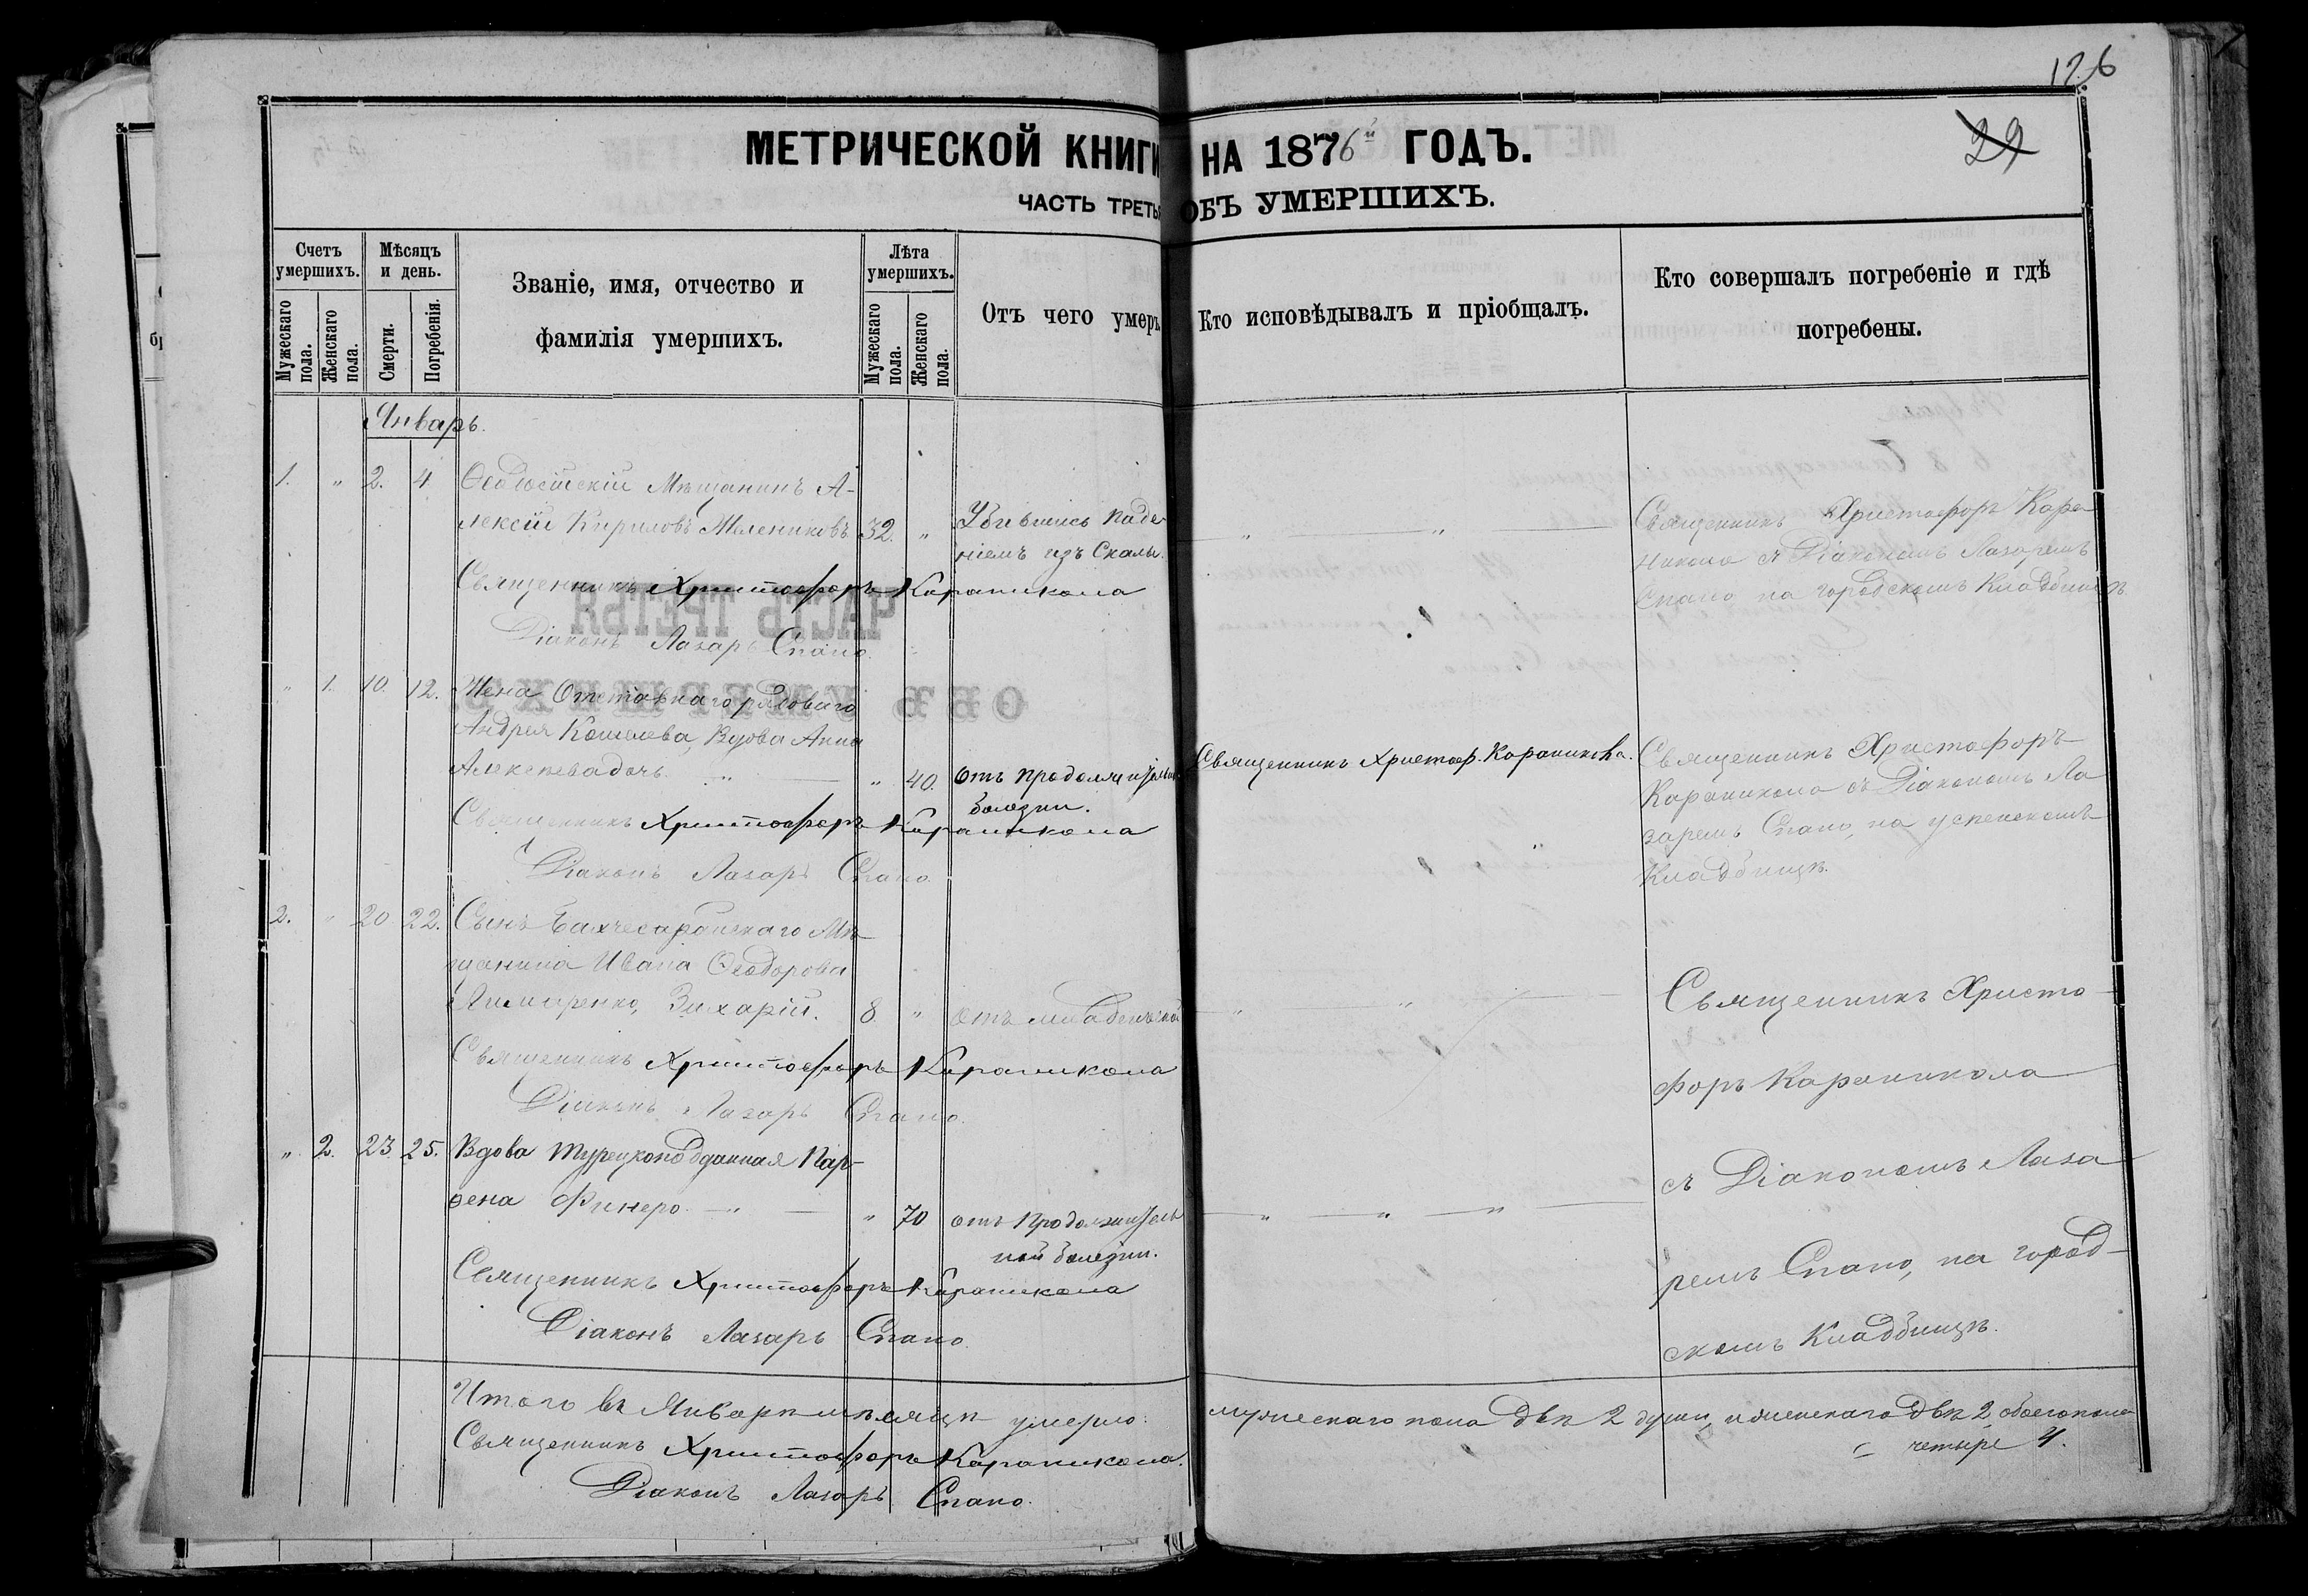 126
29
МЕТРИЧЕСКОЙ КНИГИ НА 1876й ГОДЪ.
ЧАСТЬ ТРЕТЬЯ ОБЪ УМЕРШИХЪ.
Счетъ умершихъ.
Мужескаго пола.
Женскаго пола.
Мѣсяцъ и день.
Смерти.
Погребенія.
Званіе, имя, отчество и
фамилія умершихъ.
Лѣта умершихъ.
Мужескаго пола.
Женскаго пола.
Отъ чего умеръ
Кто исповѣдывалъ и пріобщалъ.
Кто совершалъ погребеніе и гдѣ
погребены.
Январь.
1. " 2. 4 Ѳеодосійскій Мѣщанинъ А-
лексій Кириловъ 32. "
Убившись паде-
ніемъ изъ Скалы.
Священникъ Христофоръ Кара-
никола съ Діакономъ Лазаремъ
Спано на городскомъ Кладбищѣ
Священникъ Христофоръ Караникола
Діаконъ Лазарь Спано.
" 1. 10. 12. Жена Отставнаго рядоваго
Андрея Кошелева, Вдова Анна
Алексѣева дочь. " 40. отъ продолжительной
болезни.
Священникъ Христоф. Караникола.
Священникъ Христофоръ
Караникола съ Діакономъ Ла
заремъ Спано, на успенскомъ
Кладбищѣ.
Священникъ Христофоръ Караникола
Діаконъ Лазарь Спано.
2. " 20 22. Сынъ Бахчесарайскаго Мѣ-
щанина Ивана Ѳеодорова
Захарій. 8. " отъ младенческой
Священникъ Христо-
форъ Караникола
съ Діакономъ Лаза
ремъ Спано, на город-
скомъ Кладбищѣ.
Священникъ Христофоръ Караникола
Діаконъ Лазарь Спано.
" 2. 23 25. Вдова турецкоподданная
Финеро. " 70 отъ продолжитель
ной болезни.
Священникъ Христофоръ Караникола
Діаконъ Лазарь Спано.
Итого въ Январѣ мѣсяцѣ умерло: мужескаго пола двѣ 2 души, женскаго двѣ 2, обоего пола
четыре 4.
Священникъ Христофоръ Караникола.
Діаконъ Лазарь Спано.